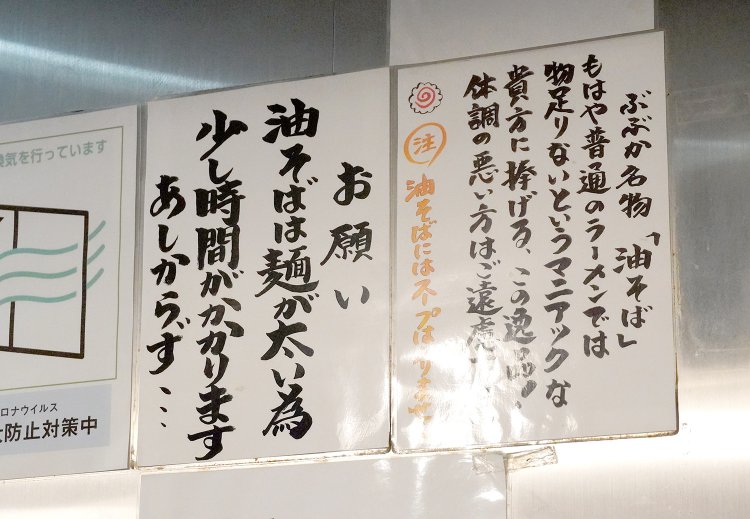 ぶぶか名物「油そば」
もはや普通のラーメンでは
物足りないというマニアックな
貴方に捧げる、この逸品!、
体調の悪い方はご遠慮
注 油そばにはスープは
お願い
油そばは麺が太い為
少し時間がかかります
あしからず…
換気を行っています
ロナウイルス
防止対策中